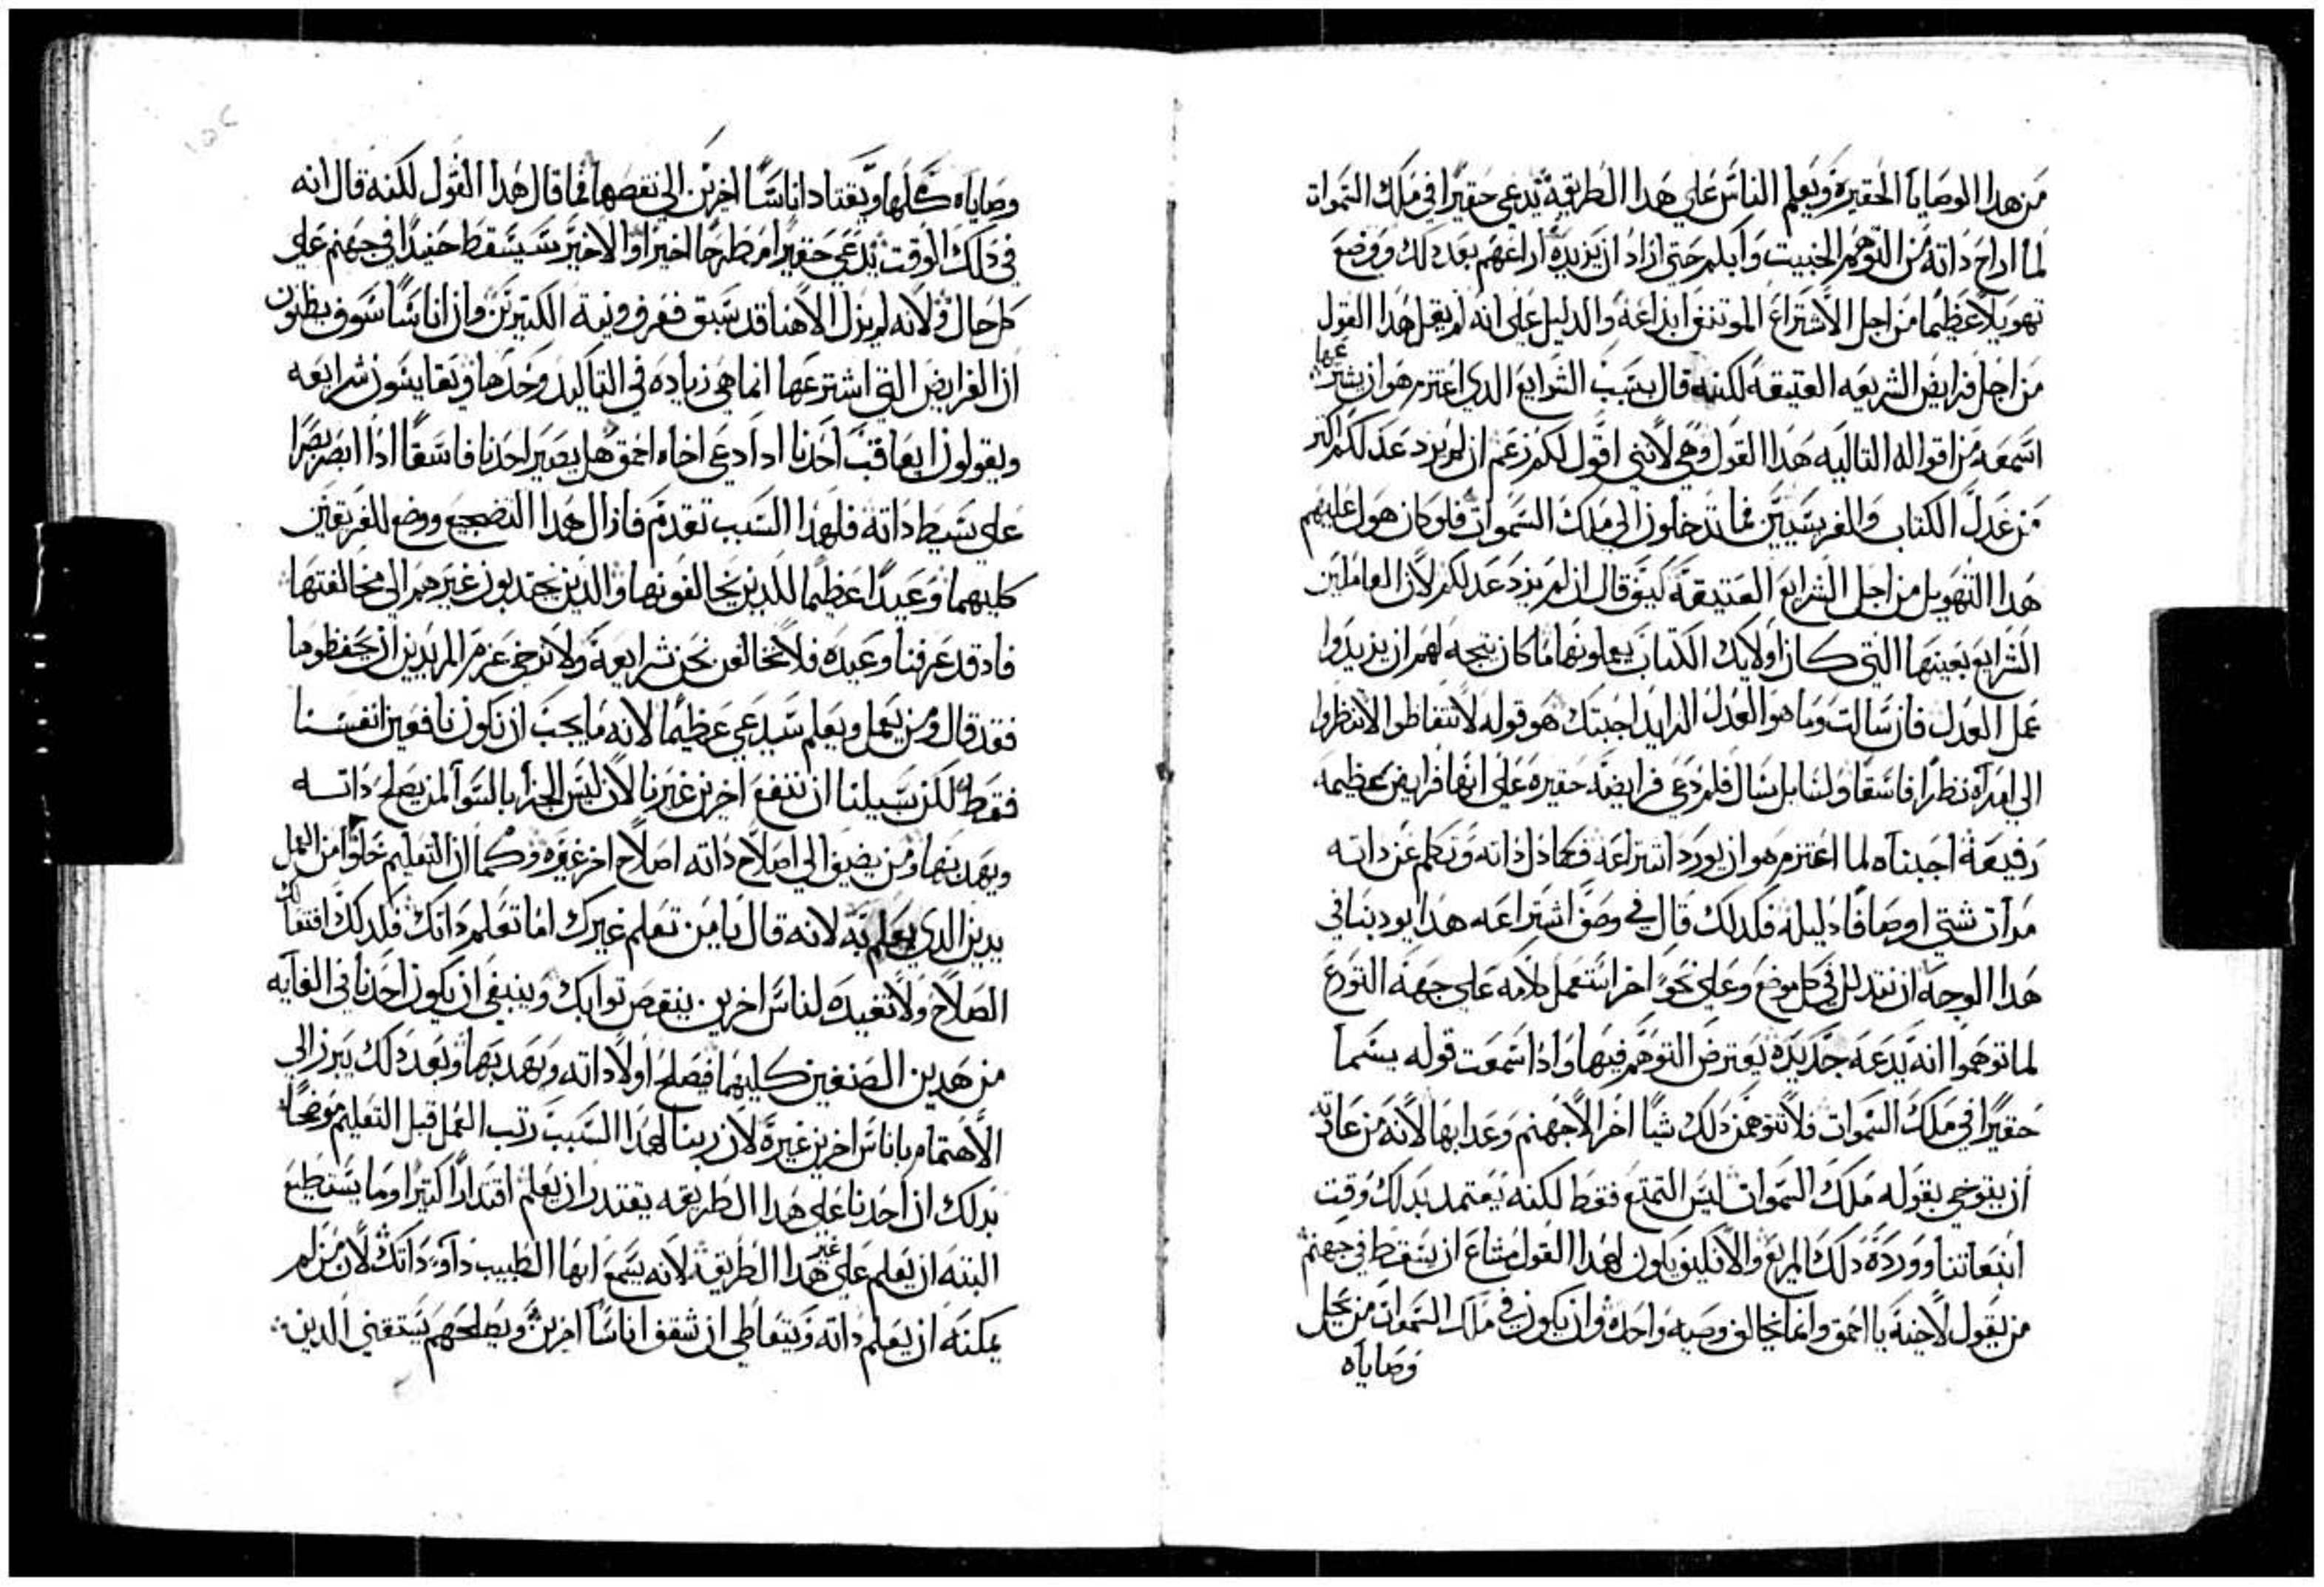 من هدا الوصايا الحقيره ويعلم الناس علي هدا الطريقة يدعي حقيرا في ملك السموات
لما اراح داته من التوهم الخبيت وابلم حتي اراد ان يزيده اراعهم بعد دلك ووضع
تهويلا عظيما من اجل الاشتراع المو تنفع ابداعه والدليل علي انه لم يقل هدا القول
من اجل فرايض الشريعه العتيقه لكنه قال بسبب الشرايع الدي اعتزم هو ان يشترعها
اسمعه من اقواله التاليه هدا القول وهي لانني اقول لكم زعم ان لم يزد عدلكم اكتر
من عدل الكتاب والفريسيين فما تدخلون الي ملك السموات فلو كان هول عليهم
هدا التهويل من اجل الشرايع العتيقه كيف قال ان لم يزد عدلكم لان العاملين
الشرايع بعينها التي كان اولايك الكتاب يعلمونها ما كان يتجه لهم ان يزيدوا
عمل العدل فان سالت وما هو العدل الزايد اجبتك هو قوله لا تغتاظوا لا تنظروا
الي امراه نظرا فاسقا ولسايل يسال فلم دعي فرايضه حقيره علي انها فرايض عظيمه
رفيعة اجبناه لما اعتزم هو ان يورد اشتراعه فكما دل داته وتكلم عن داته
مرات شتي اوصافا دليله فكدلك قال في وصف اشتراعه هدا يودبنا في
هدا الوجه ان نتدلل في كل موضع وعلي نحو اخر استعمل كلامه علي جهة التورع
لما توهموا انه بدعه جديده يعترض التوهم فيها وادا سمعت قوله يسما
حقيرا في ملك السموات فلا تتوهمن دلك شيا اخر الا جهنم وعدابها لانه من عادته
ان يتوخي بقوله ملك السموات ليس التمتع فقط لكنه يعتمد بدلك وقت
انبعاتنا ووروده دلك المريع والا فكيف يكون لهدا القول مساغ ان يسقط في جهنم
من يقول لاخيه يا احمق وانما يخالف وصيه واحده وان يكون في ملك السموات من يحل
وصاياه
وصاياه كلها ويقتاد اناسا اخرين الي نقضها فما قال هدا القول لكنه قال انه
في دلك الوقت يدعي حقيرا مطرحا اخيرا والاخير سيسقط حنيدا في جهنم علي
كل حال ولانه لم يزل الاهنا قد سبق فعرف ونية الكتيرين وان اناسا سوف يظنون
ان الفرايض التي اشترعها انما هي زياده في التاكيد وحدها ويقايسون شرايعه
ويقولون ايعاقب احدنا ادا دعي اخاه احمق هل يصير احدنا فاسقا ادا ابصر بصرا
علي بسيط داته فلهدا السبب تقدم فازال هدا التضجيع ووضع للفريقين
كليهما وعيدا عظيما للدين يخالفونها والدين يجتدبون غيرهم الي مخالفتها
فاد قد عرفنا وعيده فلا نخالفن نحن شرايعه ولا نرخي عزم المريدين ان يحفظوها
فقد قال ومن يعمل ويعلم سيدعي عظيما لانه ما يجب ان نكون نافعين انفسنا
فقط لكن سبيلنا ان ننفع اخرين غيرنا لان ليس الجزا بالسوا لمن يصلح داته
ويهدبها ومن يضيف الي اصلاح داته اصلاح اخر غيره وكما ان التعليم خلوا من العمل
يدين الدي يعلم به لانه قال يا من تعلم غيرك اما تعلم داتك فلدلك افتعالك
الصلاح ولا تفيده لناس اخرين ينقص توابك وينبغي ان يكون احدنا في الغايه
من هدين الصنفين كليهما فيصلح اولا داته ويهدبها وبعد دلك يبرز الي
الاهتمام باناس اخرين غيره لان ربنا لهدا السبب رتب العمل قبل التعليم موضحا
بدلك ان احدنا علي هدا الطريقه يقتدر ان يعلم اقتدارا كتيرا وما يستطيع
البته ان يعلم علي غير هدا الطريقة لانه يسمع ايها الطبيب داوي داتك لان من لم
يمكنه ان يعلم داته ويتعاطي ان تتقف اناسا اخرين ويصلحهم يستقني الدين